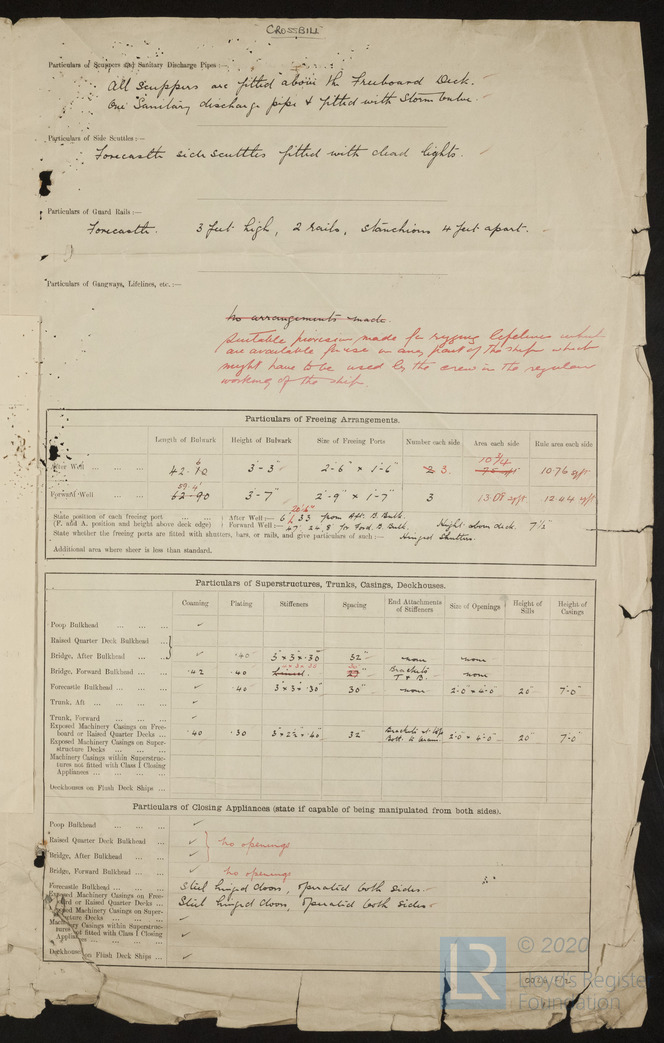 CROSSBILL
Particulars of Scuppers and Sanitary Discharge Pipes :—
All scuppers are fitted above the Freeboard Deck.
One Sanitary discharge pipe & fitted with Storm valve.
Particulars of Side Scuttles :—
Forecastle side scuttles fitted with dead lights.
Particulars of Guard Rails :—
Forecastle. 3 feet high, 2 rails, stanchions 4 feet apart.
Particulars of Gangways, Lifelines, etc. :—
No arrangements made.
Suitable provision made for rigging lifelines which
are available for use in any part of the ship which
might have to be used by the crew in the regular
working of the ship.
Particulars of Freeing Arrangements.
Length of Bulwark Height of Bulwark Size of Freeing Ports Number each side Area each side Rule area each side
After Well ... ... ... 3'-3" 2'-6" × 1'-6" 2 3. 10.76 sq/ft
Forward Well ... ... 62-90 3'-7" 2'-9" × 1'-7" 3 13.08 sq/ft 12.44 sq/ft
State position of each freeing port ... ... After Well :— from Aft. B. Bulk.
(F. and A. position and height above deck edge) Forward Well :— Height above deck. 7½"
State whether the freeing ports are fitted with shutters, bars, or rails, and give particulars of such :— Hinged Shutters.
Additional area where sheer is less than standard.
Particulars of Superstructures, Trunks, Casings, Deckhouses.
Coaming Plating Stiffeners Spacing End Attachments of Stiffeners Size of Openings Height of Sills Height of Casings
Poop Bulkhead ... ... ... ✓
Raised Quarter Deck Bulkhead ...
Bridge, After Bulkhead ... ... ✓ .40 3" × 3" × .30 32" none none
Bridge, Forward Bulkhead ... .42 .40 Brackets T & B. none
Forecastle Bulkhead ... ... ✓ .40 3" × 3" × .30" 30" none 2'-0" × 4'-0" 20" 7'-0"
Trunk, Aft ... ... ... ✓
Trunk, Forward ... ... ... ✓
Exposed Machinery Casings on Free-
board or Raised Quarter Decks ... .40 .30 32" 2'-0" × 4'-0" 20" 7'-0"
Exposed Machinery Casings on Super-
structure Decks ... ... ...
Machinery Casings within Superstruc-
tures not fitted with Class I Closing
Appliances ... ... ... ...
Deckhouses on Flush Deck Ships ...
Particulars of Closing Appliances (state if capable of being manipulated from both sides).
Poop Bulkhead ... ... ... ✓
Raised Quarter Deck Bulkhead ... ✓
no openings
Bridge, After Bulkhead ... ... ✓
Bridge, Forward Bulkhead ... ✓ no openings
Forecastle Bulkhead ... ... Steel hinged doors, operated both sides
Exposed Machinery Casings on Free-
board or Raised Quarter Decks ... Steel hinged doors, operated both sides
Exposed Machinery Casings on Super-
structure Decks ... ... ✓
Machinery Casings within Superstruc-
tures not fitted with Class I Closing
Appliances ... ... ✓
Deckhouses on Flush Deck Ships ... ✓
© 2020
LR
Lloyd's Register
Foundation